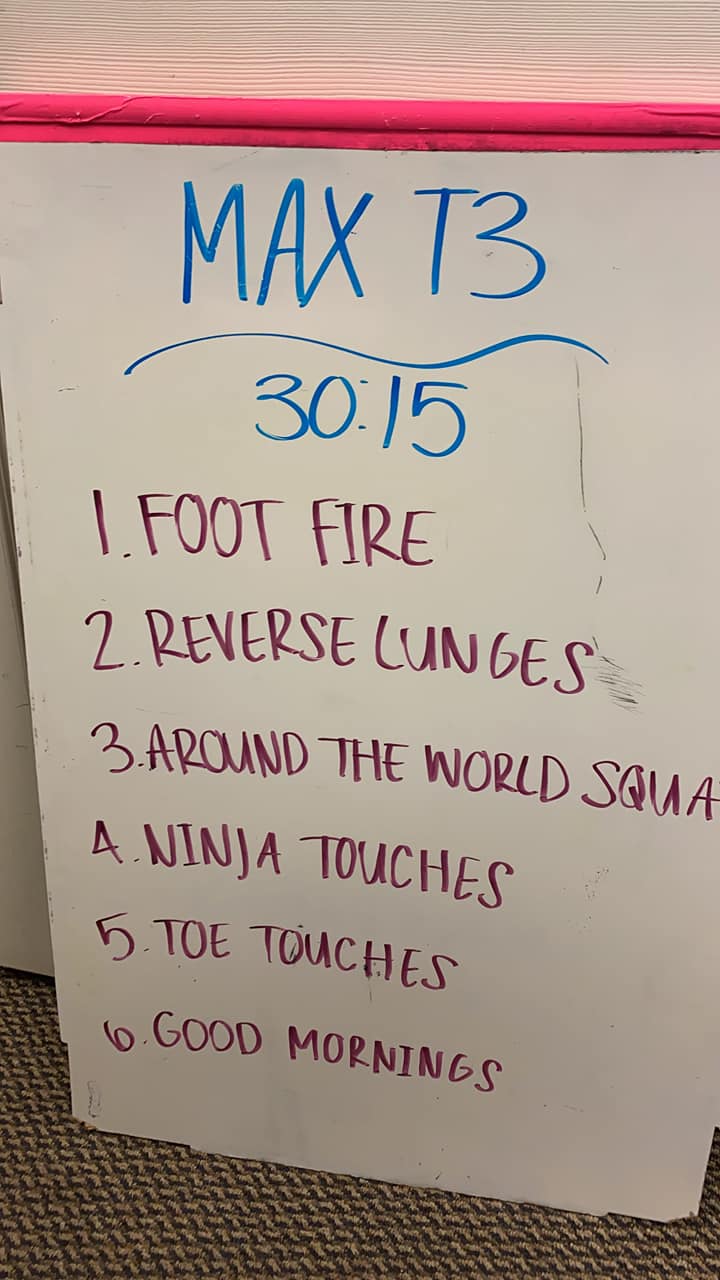 MAX T3
30:15
1. FOOT FIRE
2. REVERSE LUNGES
3. AROUND THE WORLD SQUA
4. NINJA TOUCHES
5. TOE TOUCHES
6. GOOD MORNINGS